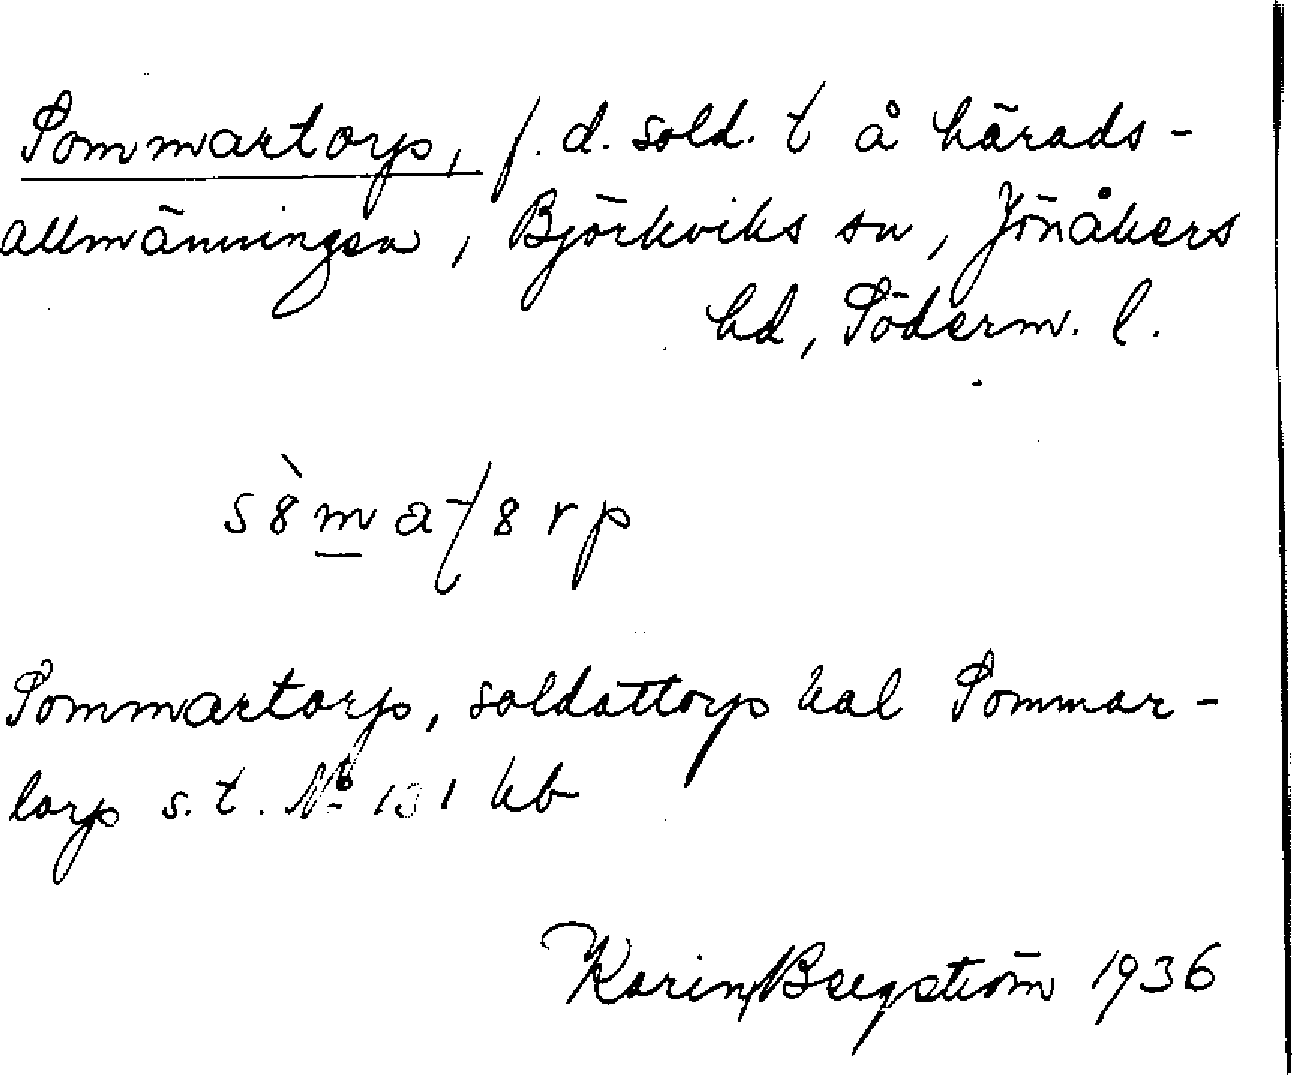 Sommartorp, f. d. sold. t å härads-
allmänningen, Björkviks sn, Jönåkers
hd, Söderm. l.
s8̀m̲at8rp
Sommartorp, soldattorp kal Sommar-
torp s. t. No 131 kb
Karin Bergström 1936